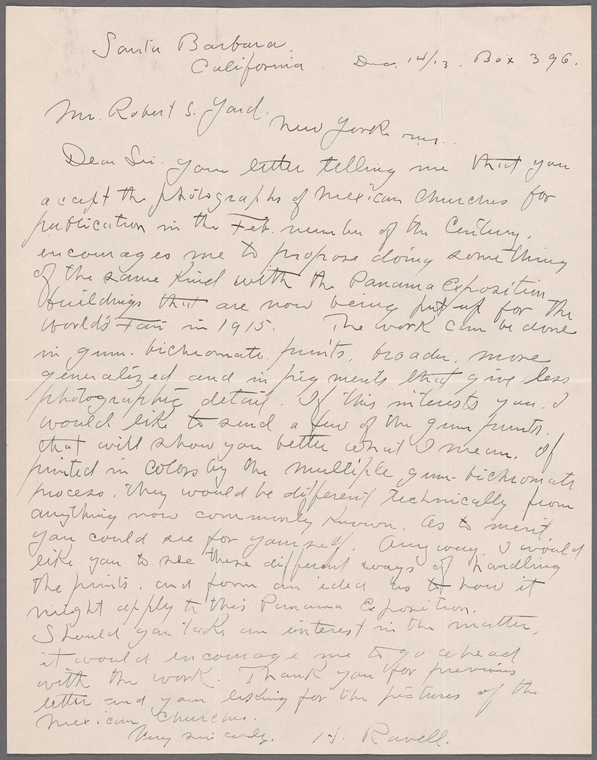 Santa Barbara.
California. Dec. 14/13. Box 396.
Mr. Robert S. Yard.
New York
Dear Sir. Your letter telling me that you
accept the photographs of Mexican Churches for
publication in the Feb. number of the Century,
encourages me to propose doing something
of the same kind with the Panama Exposition
buildings that are now being put up for the
World's Fair in 1915. The work can be done
in gum-bichromate prints, broader, more
generalized and in pigments that give less
photographic detail. If this interests you, I
would like to send a few of the gum prints,
that will show you better what I mean. If
printed in colors by the multiple gum-bichromate
process, they would be different technically from
anything now commonly known. As to merit,
you could see for yourself. Anyway, I would
like you to see these different ways of handling
the prints, and form an idea as to how it
might apply to this Panama Exposition.
Should you take an interest in the matter,
it would encourage me to go ahead
with the work. Thank you for previous
letter and your liking for the pictures of the
Mexican Churches.
Very sincerely. H. Ravell.